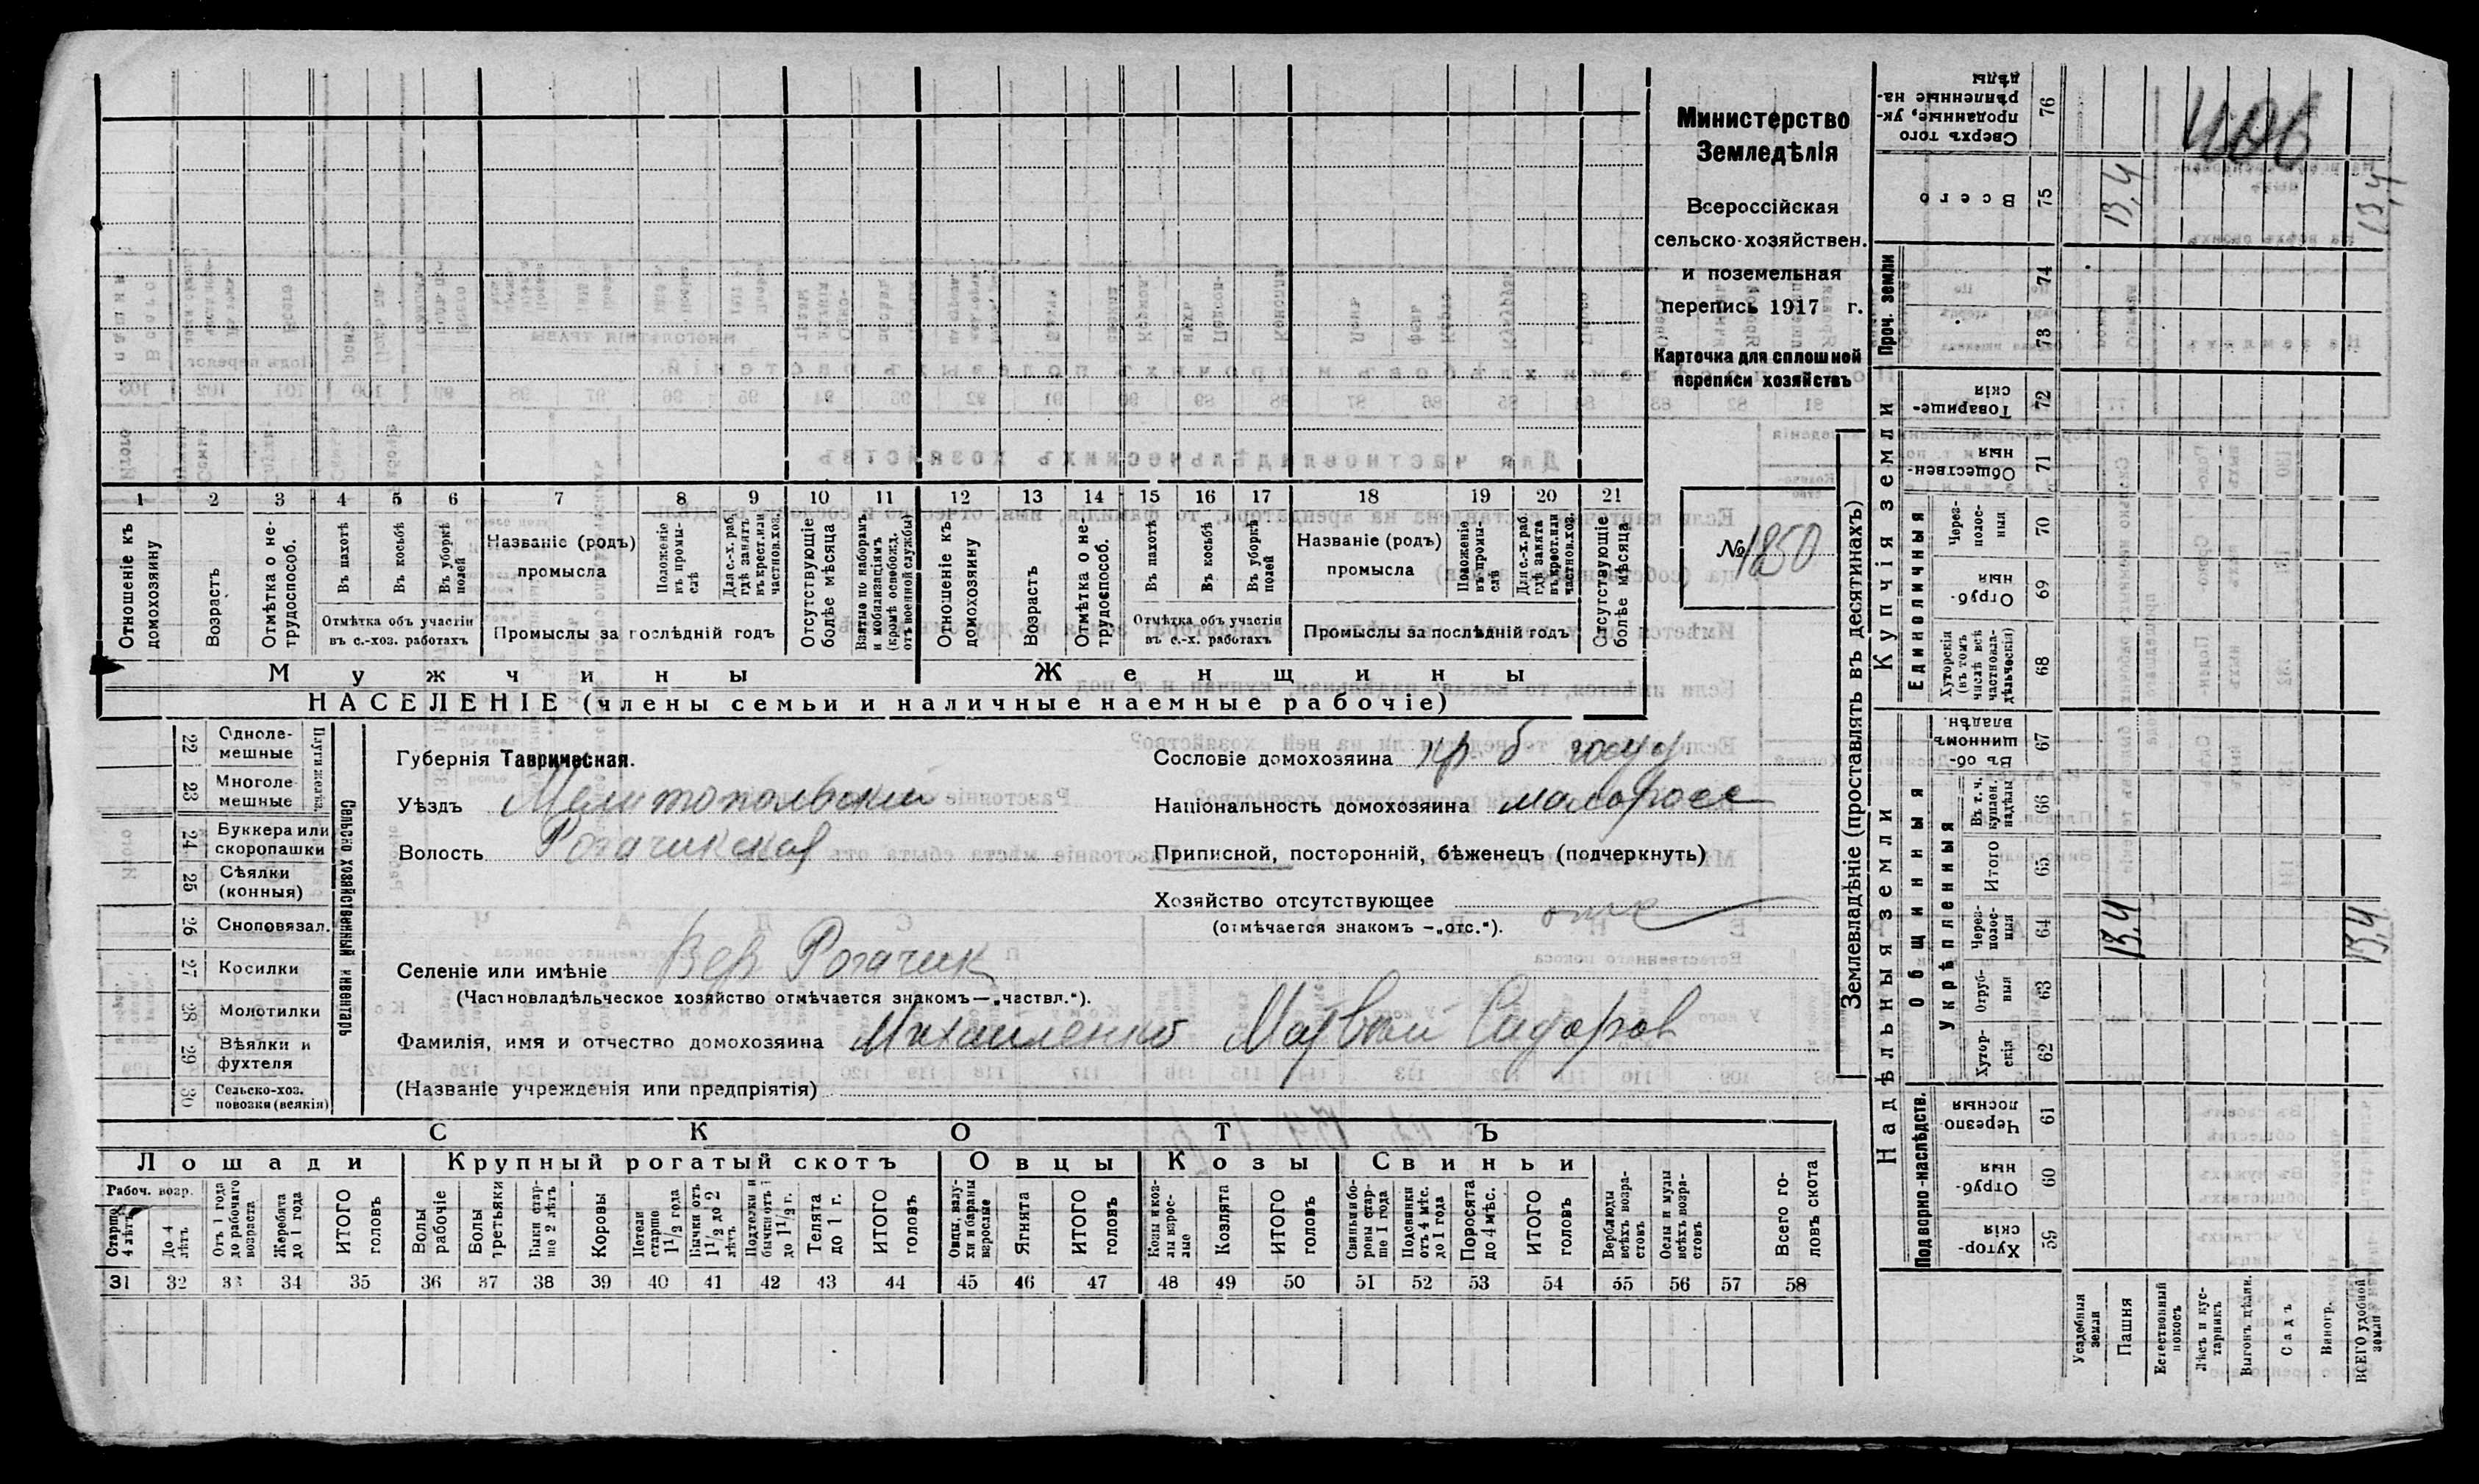 Министерство
Земледѣлія
Всероссійская
сельско-хозяйствен.
и поземельная
перепись 1917 г.
Карточка для сплошной
переписи хозяйствъ
№ 1850
1 2 3 4 5 6 7 8 9 10 11 12 13 14 15 16 17 18 19 20 21
Отношеніе къ домохозяину
Возрастъ
Отмѣтка о не-трудоспособ.
Въ пахотѣ
Въ косьбѣ
Въ уборкѣ полей
Отмѣтка объ участіи въ с.-хоз. работахъ
Названіе (родъ) промысла
Положеніе въ промы-слѣ
Для с.-х. раб. гдѣ занятъ въ крест. или частнов. хоз.
Промыслы за послѣдній годъ
Отсутствующіе болѣе мѣсяца
Взятые по наборамъ и мобилизаціямъ (кромѣ освобожд. отъ военной службы)
Отношеніе къ домохозяину
Возрастъ
Отмѣтка о не-трудоспособ.
Въ пахотѣ
Въ косьбѣ
Въ уборкѣ полей
Отмѣтка объ участіи въ с.-х. работахъ
Названіе (родъ) промысла
Положеніе въ промы-слѣ
Для с.-х. раб. гдѣ занята въ крест. или частнов. хоз.
Промыслы за послѣдній годъ
Отсутствующіе болѣе мѣсяца
Мужчины Женщины
НАСЕЛЕНІЕ (члены семьи и наличные наемные рабочіе)
22 Одноле-мешные
23 Многоле-мешные
24 Буккера или скоропашки
25 Сѣялки (конныя)
26 Сноповязал.
27 Косилки
28 Молотилки
29 Вѣялки и фухтеля
30 Сельско-хоз. повозки (всякія)
Сельско хозяйственный инвентарь
Губернія Таврическая.
Уѣздъ Мелитопольскій
Волость Рогачикская
Селеніе или имѣніе Вер Рогачик
(Частновладѣльческое хозяйство отмѣчается знакомъ—„частвл.“).
Фамилія, имя и отчество домохозяина Михайленко Матвей Сидоров
(Названіе учрежденія или предпріятія)
Сословіе домохозяина кр. б госуд.
Національность домохозяина малоросс
Приписной, посторонній, бѣженецъ (подчеркнуть)
Хозяйство отсутствующее отс
(отмѣчается знакомъ —„отс.“).
СКОТЪ
Лошади Крупный рогатый скотъ Овцы Козы Свиньи
Рабоч. возр.
Старше 4 лѣтъ
До 4 лѣтъ
Отъ 1 года до рабочаго возраста
Жеребята до 1 года
ИТОГО головъ
Волы рабочіе
Волы третьяки
Быки стар-ше 2 лѣтъ
Коровы
Нетели старше 1 1/2 года
Бычки отъ 1 1/2 до 2 лѣтъ
Подтелки и бычки отъ 1 до 1 1/2 г.
Телята до 1 г.
ИТОГО головъ
Овцы, валу-хи и бараны взрослые
Ягнята
ИТОГО головъ
Козы и коз-лы взрос-лые
Козлята
ИТОГО головъ
Свиньи и бо-ровы стар-ше 1 года
Подсвинки отъ 4 мѣс. до 1 года
Поросята до 4 мѣс.
ИТОГО головъ
Верблюды всѣхъ возра-стовъ
Ослы и мулы всѣхъ возра-стовъ
Всего го-ловъ скота
31 32 33 34 35 36 37 38 39 40 41 42 43 44 45 46 47 48 49 50 51 52 53 54 55 56 57 58
Землевладѣніе (проставлять въ десятинахъ)
Надѣльныя земли Купчія земли Проч. земли
Подворно-наслѣдств. Общинныя Единоличныя
Укрѣпленныя
Хутор-скія 59
Отруб-ныя 60
Черезпо лосныя 61
Хутор-скія 62
Отруб-ныя 63
Через-полос-ныя 64
Итого 65
Въ т. ч. куплен. надѣлы 66
Въ об-щинномъ владѣн. 67
Хуторскія (въ томъ числѣ всѣ частновла-дѣльческія) 68
Отруб-ныя 69
Через-полос-ныя 70
Обществен-ныя 71
Товарище-скія 72
73
74
Всего 75
Сверхъ того проданные, ук-рѣпленные на-дѣлы 76
Усадебныя земли
Пашня 13,4 13,4
Естественный покосъ
Лѣсъ и кус-тарникъ
Выгонъ цѣлин.
Садъ
Виногр.
ВСЕГО удобной земли 13,4 13,4